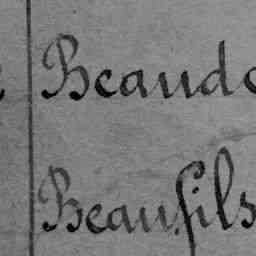 Beaude
Beaufils